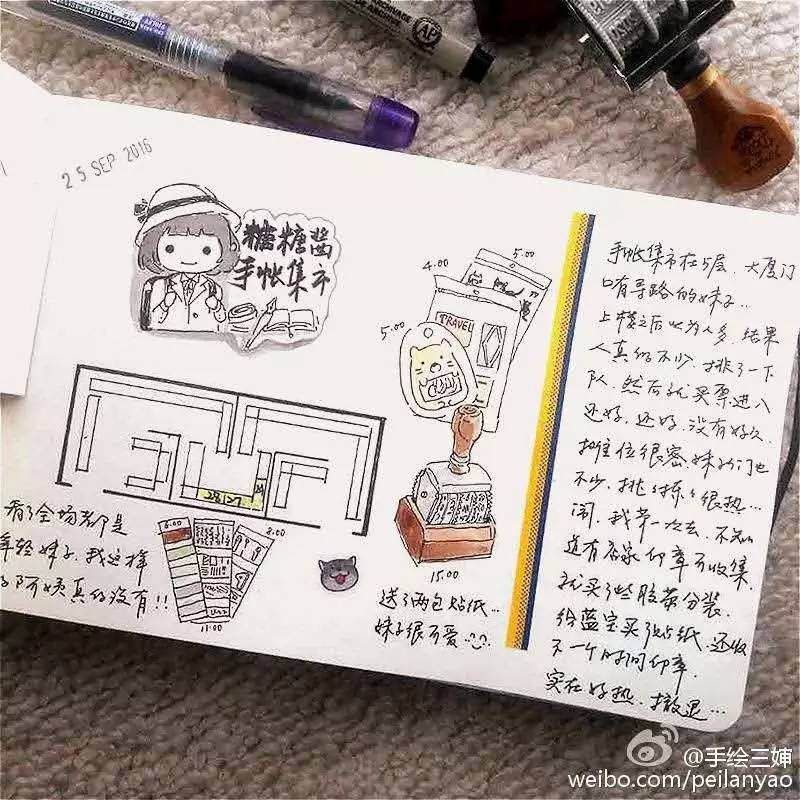 25 SEP 2016
糖糖酱
手帐集市
5.00
4.00
TRAVEL
5.00
15.00
28 27
看了全场都是
年轻妹子,我这样
阿姨真的没有!!
6.00
2.00
11.00
送了两包贴纸…
妹子很可爱
手帐集市在5层、大厦门
口有导路的妹子…
上楼之后以为人多,结果
人真的不少,排了一下
队,然后就买票进入
还好,还好,没有好久
摊位很密,妹子们也
不少,挑挑拣拣很热…
闹,我第一次去,不知
道有店家印章可收集,
就买了些胶带分装,
给蓝宝买了贴纸,还收
了一个时间印章,
实在好热,撤退…
@手绘三婶
weibo.com/peilanyao